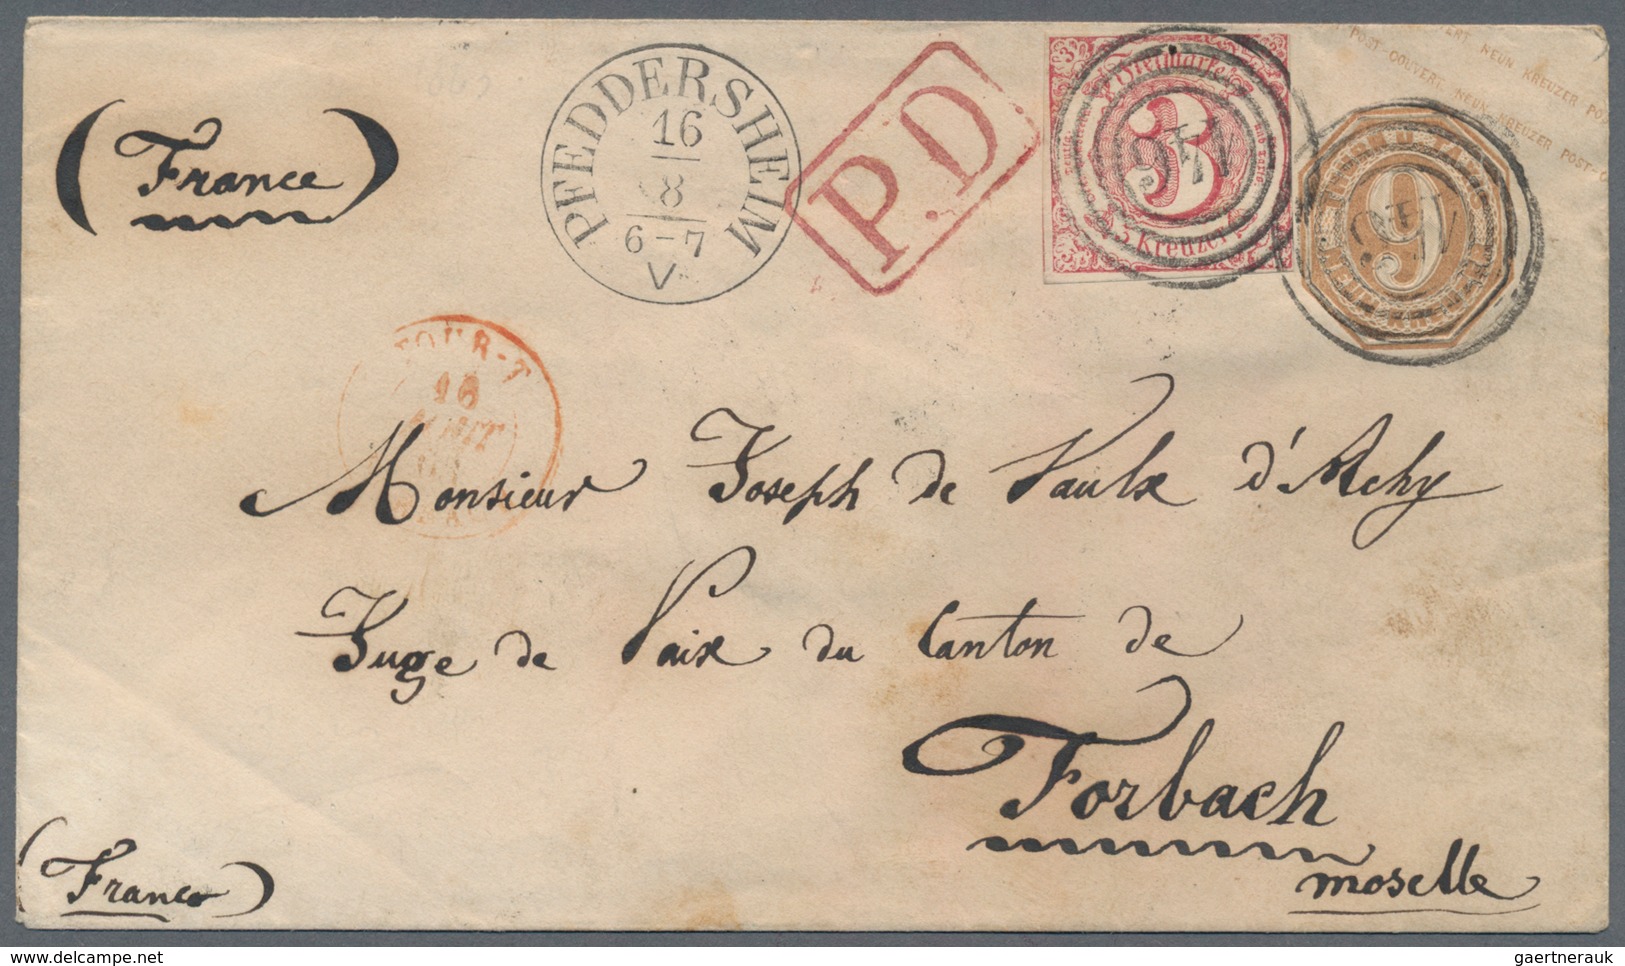 (France)
PFEDDERSHEIM
16
8
6-7
V
P.D
Freimarke
3
3 Kreuzer
POST-COUVERT NEUN KREUZER POST-COUVERT NEUN KREUZER
9
TOUR-T
16
AOUT
Monsieur Joseph de Vaulx d'Achy
Juge de Paix du Canton de
Forbach
moselle
(Franco)
gaertnerauk @ delcampe.net